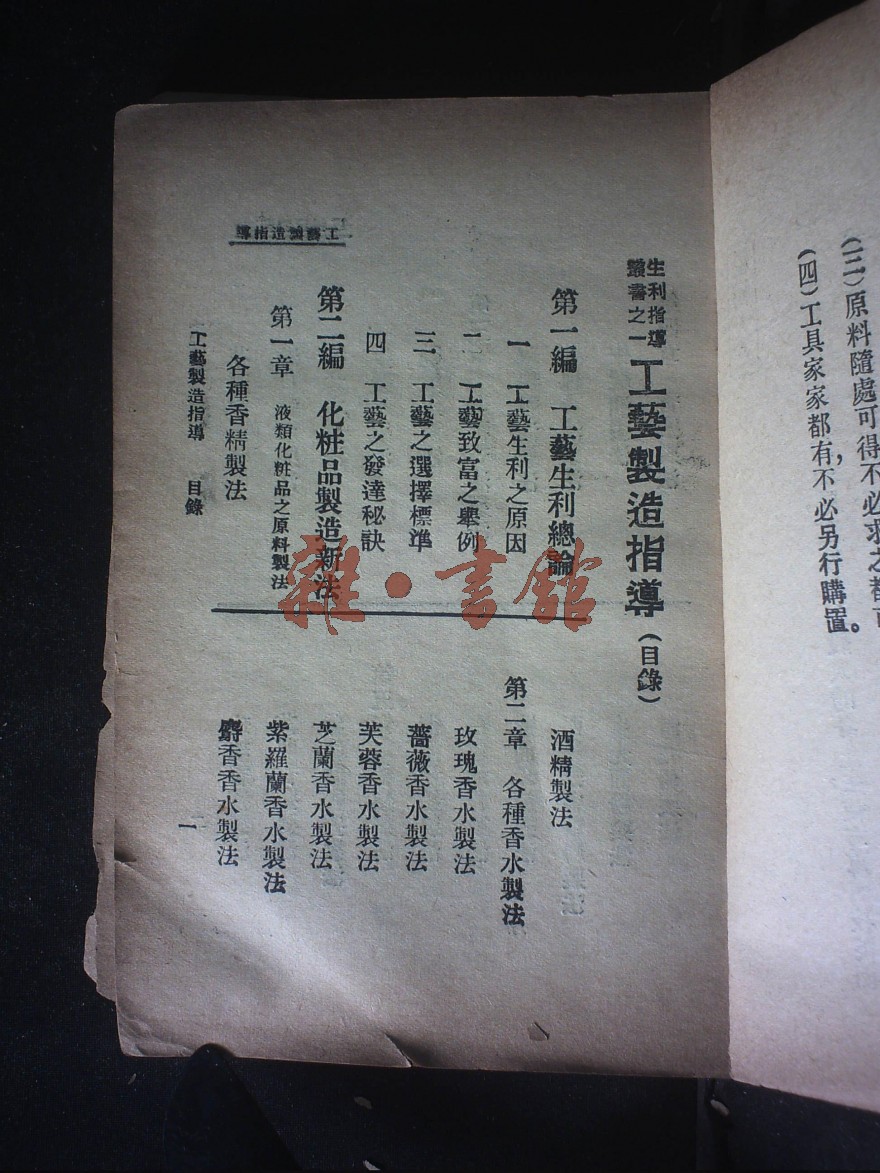 (三)原料隨處可得不必求之都
(四)工具家家都有,不必另行購置。
生利指導
叢書之一
工藝製造指導(目錄)
第一編 工藝生利總論
一 工藝生利之原因
二 工藝致富之舉例
三 工藝之選擇標準
四 工藝之發達秘訣
第二編 化粧品製造新法
第一章 液類化粧品之原料製法
各種香精製法
酒精製法
第二章 各種香水製法
玫瑰香水製法
薔薇香水製法
芙蓉香水製法
芝蘭香水製法
紫羅蘭香水製法
麝香香水製法
工藝製造指導
工藝製造指導 目錄
一
雜·書館